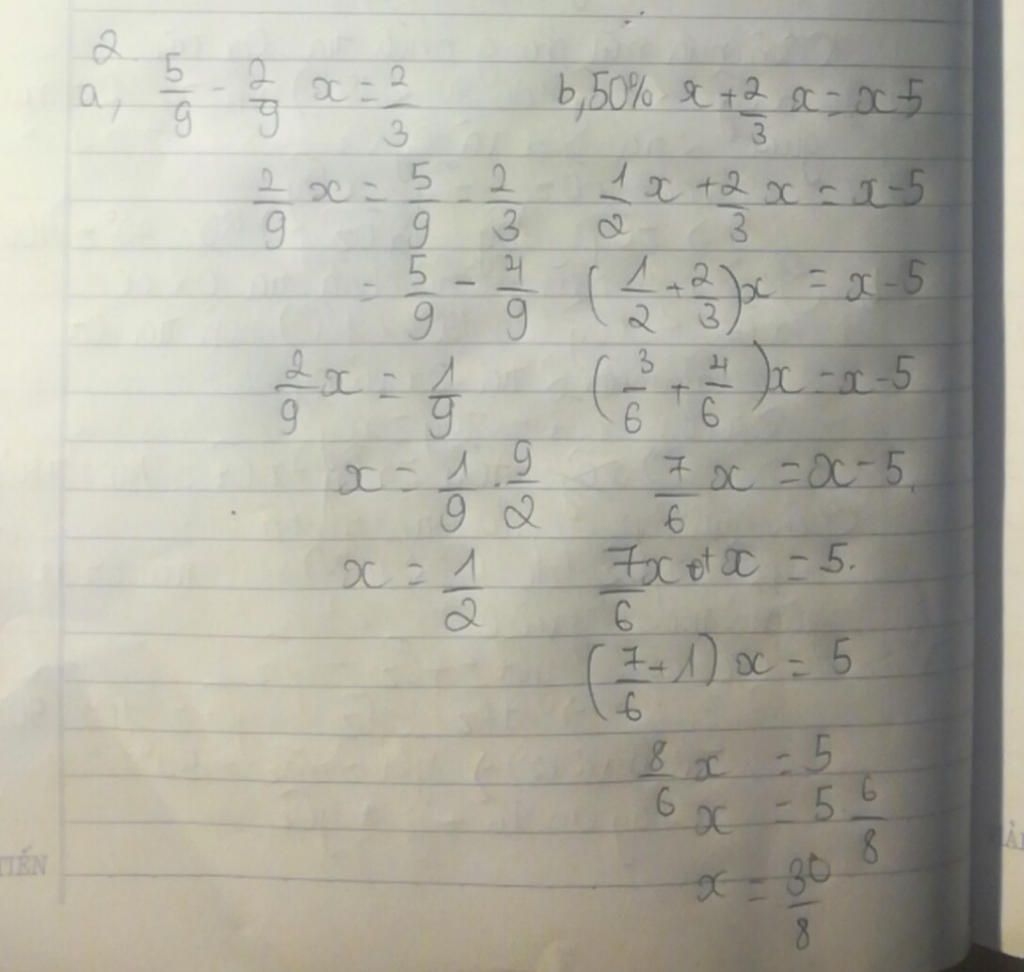 2
a, 5/9 - 2/9 x = 2/3
2/9 x = 5/9 - 2/3
= 5/9 - 4/9
2/9 x = 1/9
x = 1/9 . 9/2
x = 1/2
b, 50% x + 2/3 x = x - 5
1/2 x + 2/3 x = x - 5
(1/2 + 2/3) x = x - 5
(3/6 + 4/6) x = x - 5
7/6 x = x - 5.
7/6 x + x = 5.
(7/6 + 1) x = 5
8/6 x = 5
x = 5 6/8
x = 30/8
TIẾN